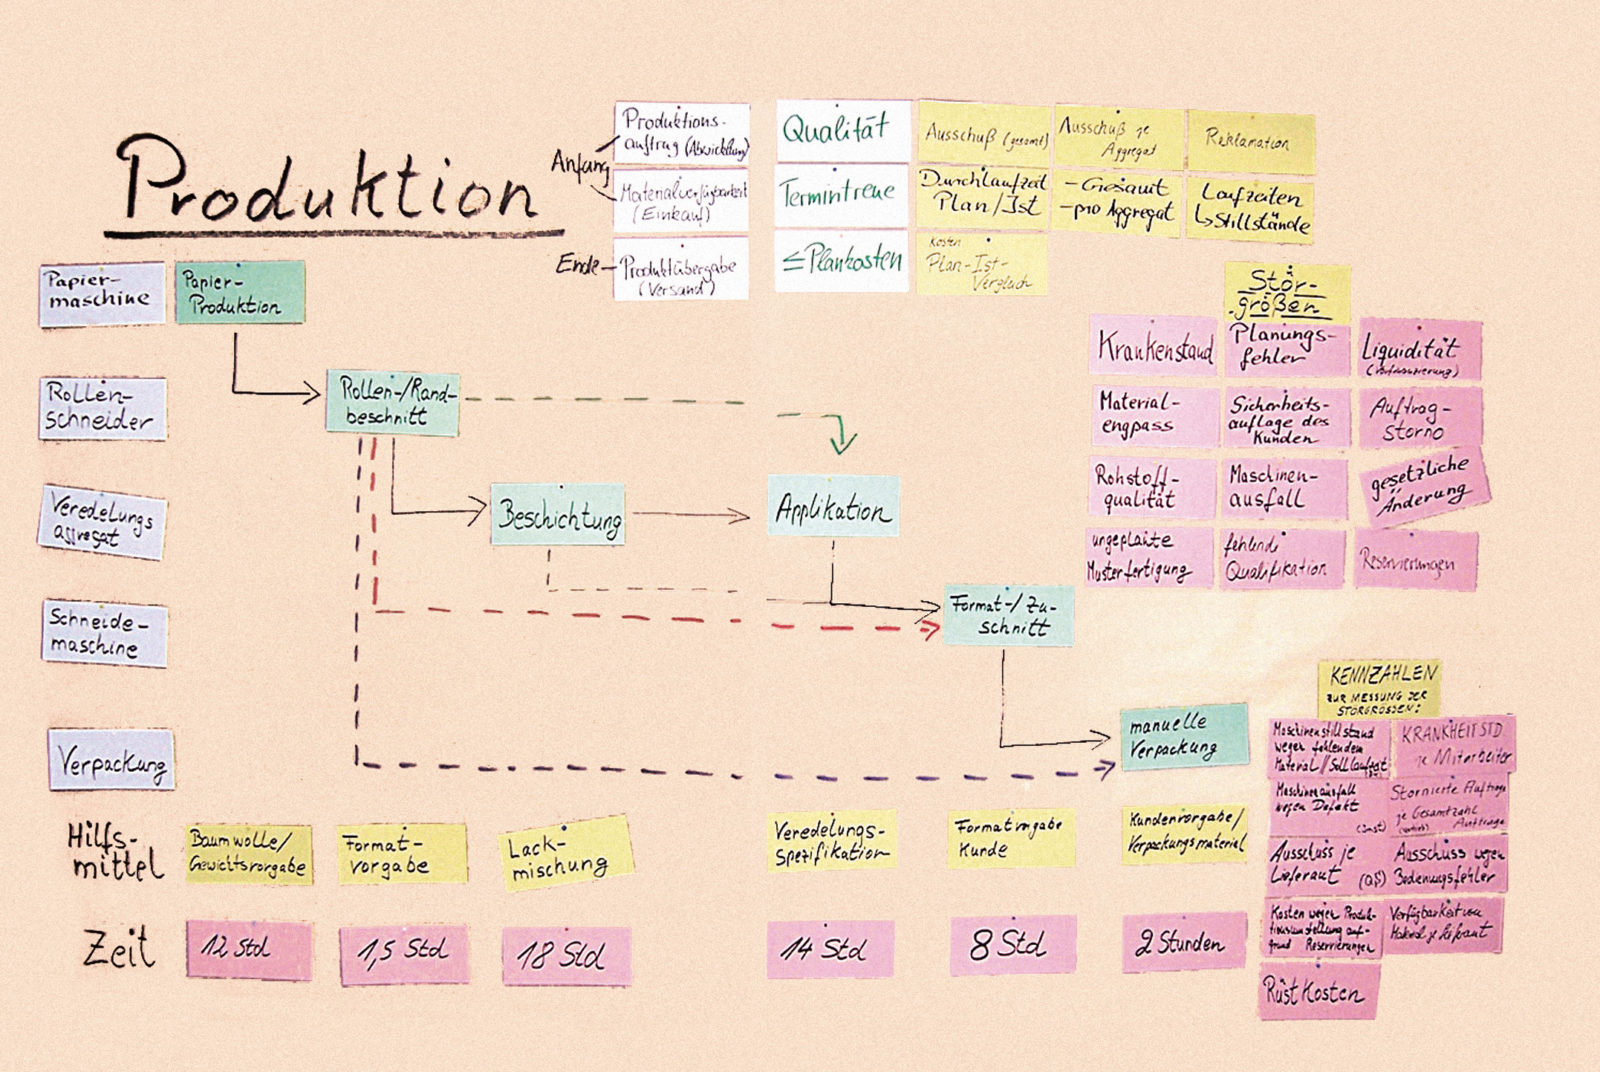 Produktion
Anfang
Produktions-
auftrag (Abwicklung)
Materialverfügbarkeit
(Einkauf)
Ende
Produktübergabe
(Versand)
Qualität
Termintreue
≤ Plankosten
Ausschuß (gesamt)
Ausschuß je
Aggregat
Reklamation
Durchlaufzeit
Plan/Ist
- Gesamt
- pro Aggregat
Laufzeiten
↳ Stillstände
Kosten
Plan-Ist-
Vergleich
Papier-
maschine
Papier-
Produktion
Rollen-
schneider
Rollen-/Rand-
beschnitt
Veredelungs
aggregat
Beschichtung
Applikation
Schneide-
maschine
Format-/Zu-
schnitt
Verpackung
manuelle
Verpackung
Hilfs-
mittel
Baumwolle/
Gewichtsvorgabe
Format-
vorgabe
Lack-
mischung
Veredelungs-
Spezifikation
Formatvorgabe
Kunde
Kundenvorgabe/
Verpackungsmaterial
Zeit
12 Std
1,5 Std
18 Std
14 Std
8 Std
2 Stunden
Stör-
größen
Krankenstand
Planungs-
fehler
Liquidität
(Vorfinanzierung)
Material-
engpass
Sicherheits-
auflage des
Kunden
Auftrag-
Storno
Rohstoff-
qualität
Maschinen-
ausfall
gesetzliche
Änderung
ungeplante
Musterfertigung
fehlende
Qualifikation
Reservierungen
KENNZAHLEN
ZUR MESSUNG DER
STÖRGRÖSSEN:
Maschinenstillstand
wegen fehlendem
Material / Solllaufzeit
KRANKHEITSTD
je Mitarbeiter
Maschinenausfall
wegen Defekt
(inst)
Stornierte Aufträge
je Gesamtzahl
Aufträge
Ausschuss je
Lieferant (QS)
Ausschuss wegen
Bedienungsfehler
Kosten wegen Produk-
tionsumstellung auf-
grund Reservierungen
Verfügbarkeit von
Material je Lieferant
Rüstkosten